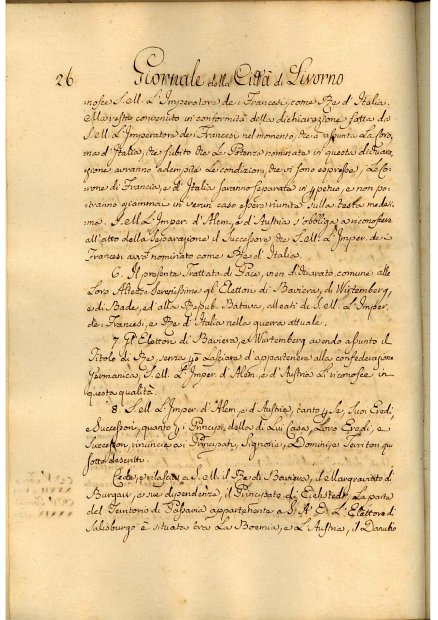 26 Giornale della Città di Livorno
nosce S. M. L'Imperatore de i Francesi, come Re d'Italia.
Ma resta convenuto in conformità della dichiarazione fatta da
S. M. L'Imperatore de i Francesi nel momento, che à assunta La Coro,
na d'Italia, che subito che Le Potenze nominate in questa dichiara,
zione avranno adempito Le condizioni, che vi sono espresse, Le Co,
rone di Francia, e d'Italia saranno separate in ppetuo, e non po,
tranno giammai in verun caso essere riunite sulla testa medesi,
me. S. M. L'Imper. d'Alem. e d'Austria s'obbliga a riconoscere
all'atto della Separazione il Successore che S. M. L'Imper. de i
Francesi avrà nominato come Re d'Italia.
6. Il presente Trattato di Pace, vien dichiarato comune alle
Loro Altezze Serenissime gl'Elettori di Baviera, di Wirtemberg,
e di Bade, ed alla Repub. Batava, alleati di S. M. L'Imper.
de i Francesi, e Re d'Italia nella guerra attuale.
7. Gl'Elettori di Baviera, e Wurtemberg avendo assunto il
Titolo di Re, senza pò Lasciare d'appartenere alla confederazione
Germanica, S. M. L'Imper. d'Alem. e d'Austria Li riconosce in
questa qualità.
8. S. M. L'Imper. d'Alem. e d'Austria, tanto p Se, Suoi Eredi,
e Successori, quanto p i Principi della di Lui Casa, Loro Eredi, e
Successori, rinuncia a i Principati, Signorie, Dominj e Territori qui
sotto descritti.
Cede, e rilascia a S. M. il Re di Baviera, il Margraviato di
Burgau, e sue dipendenze, il Principato di Eichstedt. La parte
del Territorio di Passavia appartenente a S. A. E. L'Elettore di
Salisburgo è situata tra La Boemia, e L'Austria, il Danubio